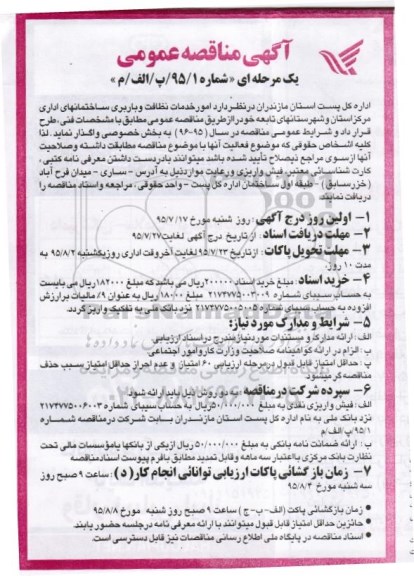 آگهی مناقصه عمومی
یک مرحله ای «شماره ۹۵/۱/پ/الف/م»
اداره کل پست استان مازندران درنظردارد امور خدمات نظافت وباربری ساختمانهای اداری
مرکز استان و شهرستانهای تابعه خود را از طریق مناقصه عمومی مطابق با مشخصات فنی، طرح
قرار داد و شرایط عمومی مناقصه در سال (۹۶-۹۵) به بخش خصوصی واگذار نماید. لذا
کلیه اشخاص حقوقی که موضوع فعالیت آنها با موضوع مناقصه مطابقت داشته و صلاحیت
آنها از سوی مراجع ذیصلاح تأیید شده باشد میتوانند بادردست داشتن معرفی نامه کتبی،
کارت شناسائی معتبر، فیش واریزی ورعایت موارد ذیل به آدرس - ساری - میدان فرح آباد
(خزرسابق) - طبقه اول ساختمان اداره کل پست - واحد حقوقی، مراجعه واسناد مناقصه را
دریافت نمایند.
۱- اولین روز درج آگهی: روز شنبه مورخ ۹۵/۷/۱۷
۲- مهلت دریافت اسناد: از تاریخ درج آگهی لغایت ۹۵/۷/۲۷
۳- مهلت تحویل پاکات: از تاریخ ۹۵/۷/۲۳ لغایت آخروقت اداری روزیکشنبه ۹۵/۸/۲ به
مدت ۱۰ روز.
۴- خرید اسناد: مبلغ خرید اسناد ۲۰۰۰۰۰ ریال می باشد که مبلغ ۱۸۲۰۰۰ ریال می بایست
به حساب سیبای شماره ۲۱۷۴۷۷۵۰۰۳۰۰۹ مبلغ ۱۸۰۰۰ ریال به عنوان ۹٪ مالیات برارزش
افزوده به حساب سیبای شماره ۲۱۷۴۷۷۵۰۰۵ نزد بانک ملی به تفکیک واریز گردد.
۵- شرایط و مدارک مورد نیاز:
الف: ارائه مدارک و مستندات مورد نیاز مندرج در اسناد ارزیابی
ب: الزام در ارائه گواهینامه صلاحیت وزارت کار و امور اجتماعی
پ: حداقل امتیاز قابل قبول در مرحله ارزیابی ۶۰ امتیاز و عدم احراز حداقل امتیاز سبب حذف
مناقصه گر میشود
۶- سپرده شرکت در مناقصه: به دو روش ذیل باید ارائه شود:
الف: فیش واریزی نقدی به مبلغ ۵۰/۰۰۰/۰۰۰ ریال به حساب سیبای شماره ۲۱۷۴۷۷۵۰۰۶۰۰۳
نزد بانک ملی به نام اداره کل پست استان مازندران بابت شرکت درمناقصه شماره
۹۵/۱/پ/الف/م
ب: ارائه ضمانت نامه بانکی به مبلغ ۵۰/۰۰۰/۰۰۰ ریال ازیکی از بانکها یامؤسسات مالی تحت
نظارت بانک مرکزی بااعتبار سه ماهه وقابل تمدید مطابق بافرم پیوست اسناد مناقصه
۷- زمان بازگشائی پاکات ارزیابی توانائی انجام کار (د): ساعت ۹ صبح روز
سه شنبه مورخ ۹۵/۸/۴
● زمان بازگشائی پاکت (الف - ب - ج) ساعت ۹ صبح روز شنبه مورخ ۹۵/۸/۸
● حائزین حداقل امتیاز قابل قبول میتوانند با ارائه معرفی نامه درجلسه حضور یابند.
● اسناد مناقصه در پایگاه ملی اطلاع رسانی مناقصات نیز قابل دسترسی است.